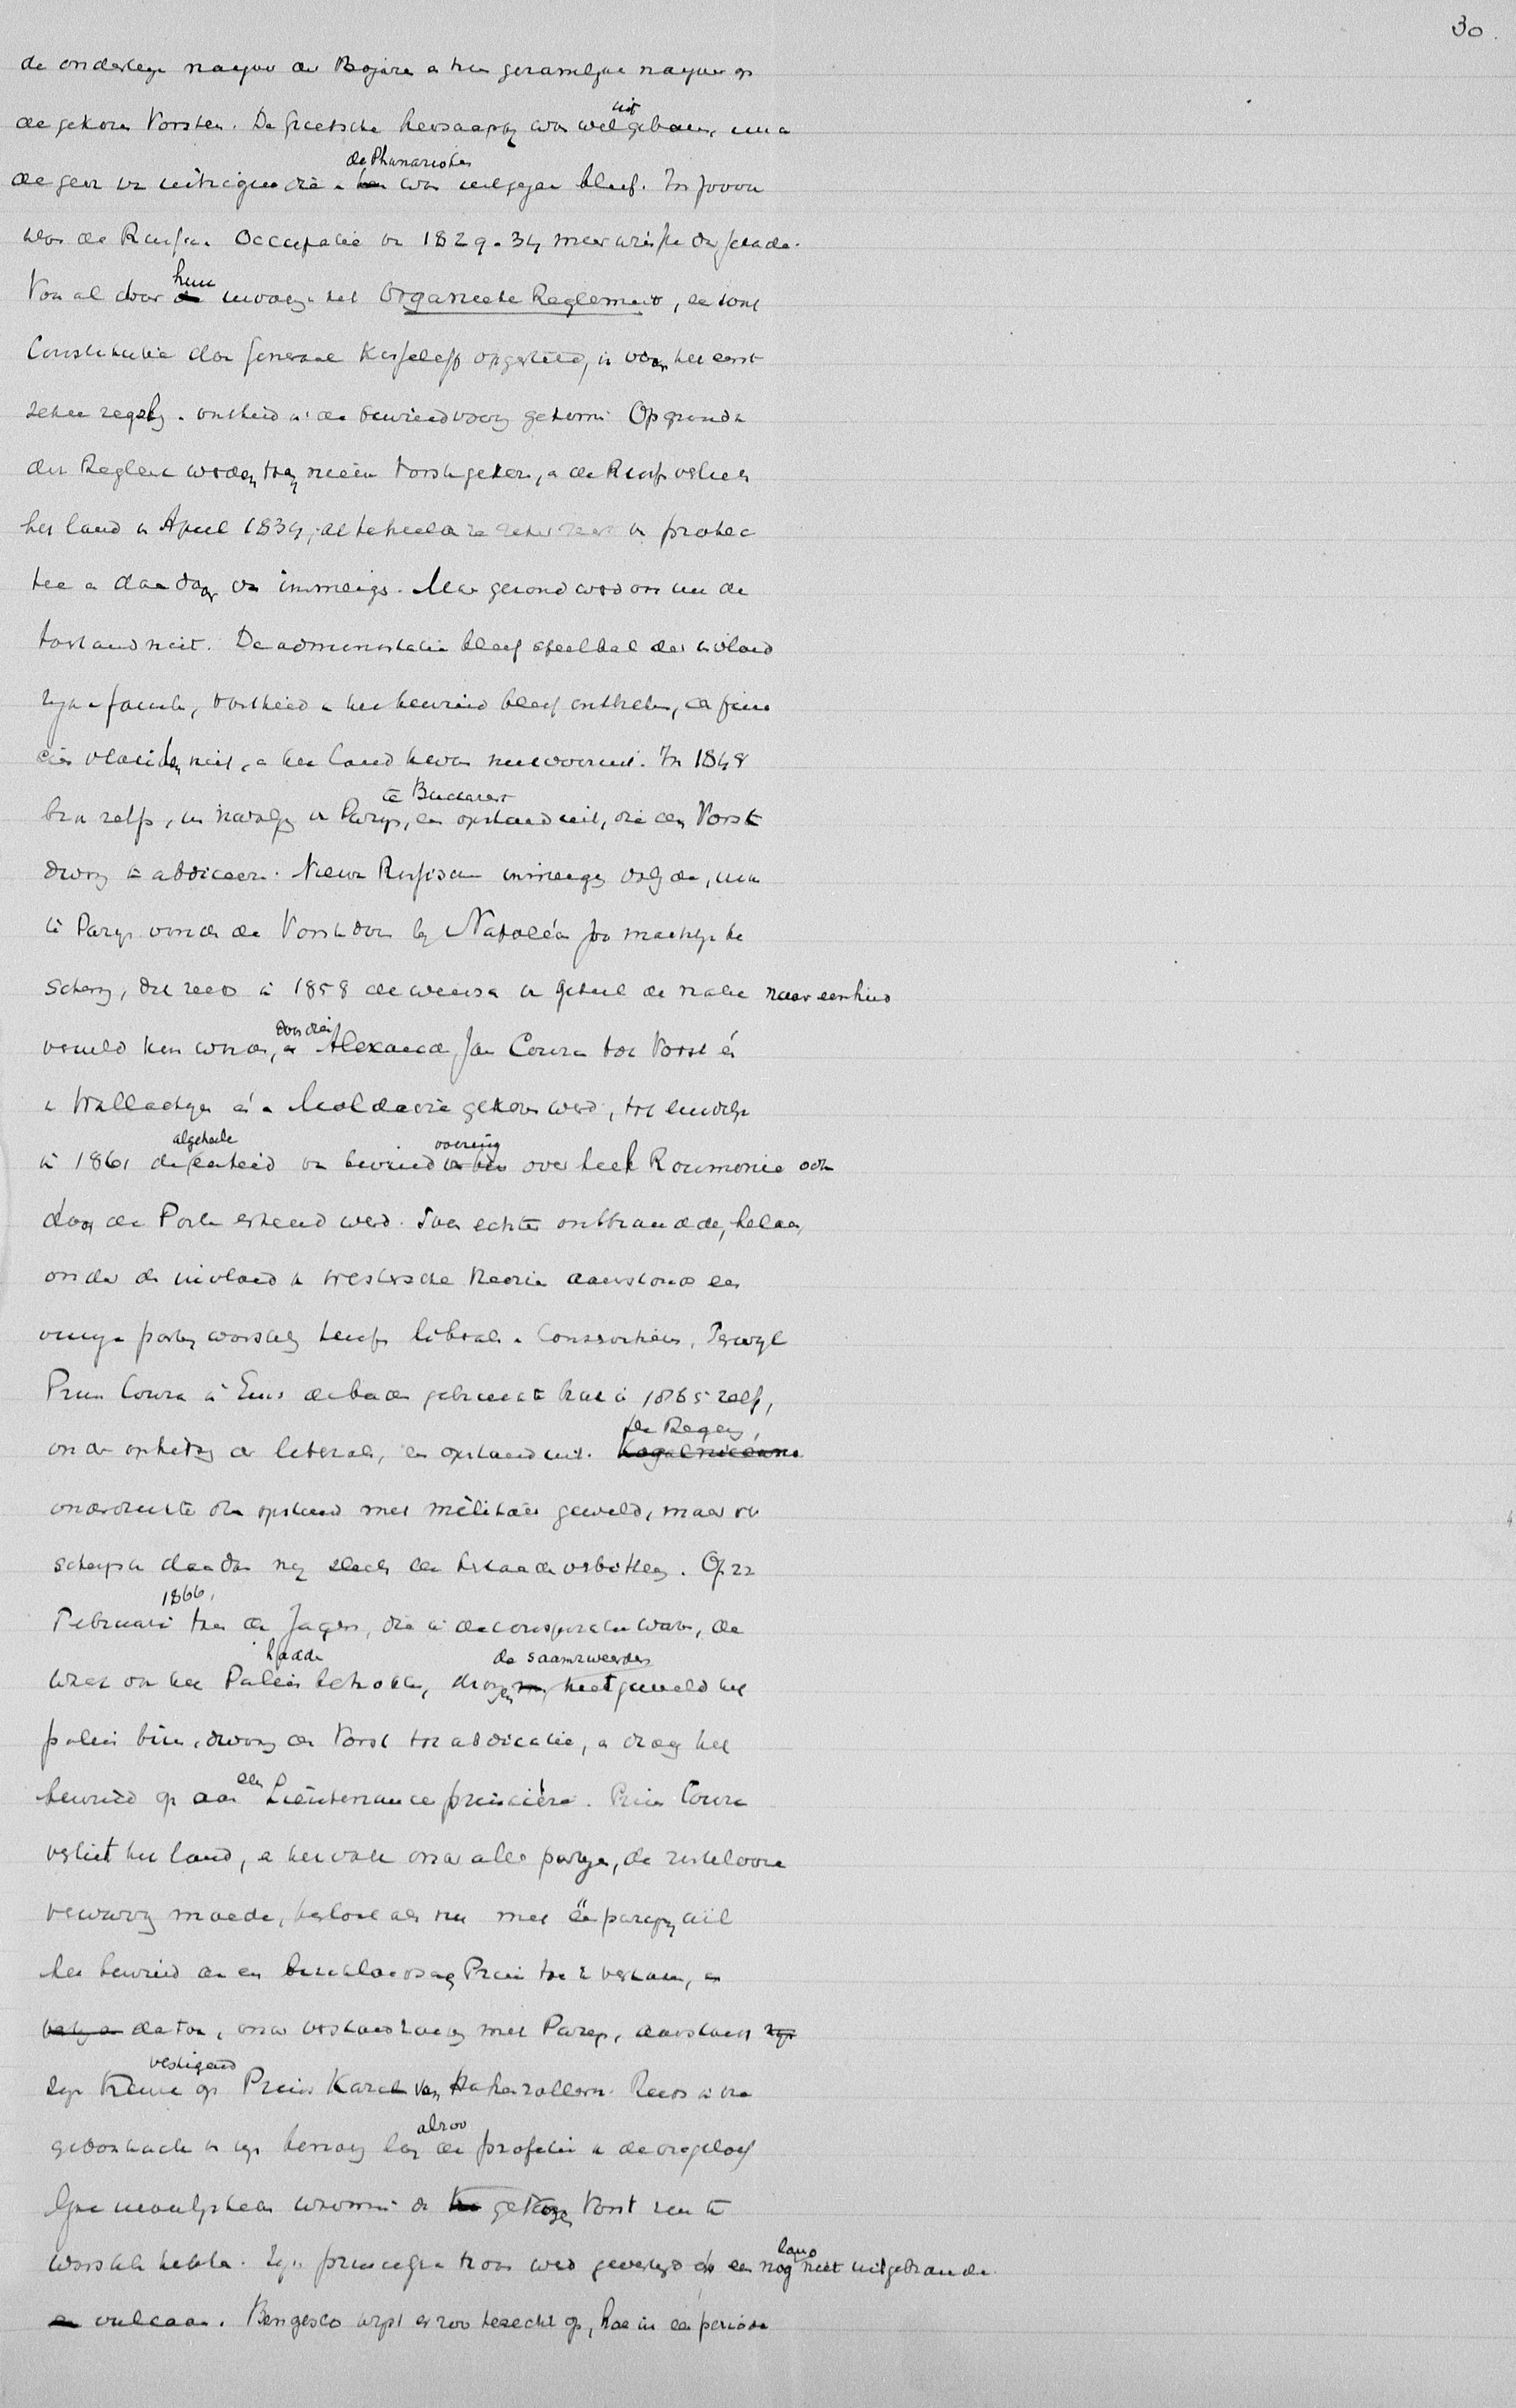 30.
de onderlinge naijver der Bojaren en hun gezamelijke naijver op
de gekozen Vorsten. De Grieksche heerschappij was wel uitgebannen, maar
de geest van intrigue die in de Phanarioten was bleef. In zooverre
was de Russische Occupatie van 1829-34 meer winste dan schade.
Vooral door hun invoering het Organieke Reglement, een soort
Constitutie door Generaal Kisseleff opgesteld, is voor het eerst
zekere regeling en vastheid in de bewindvoering gekomen. Op grond van
dit Reglement werden toen nieuwe Vorsten gekozen, en de Russen verlieten
het land in April 1834, behoudens protec
tie en daardoor van inmenging. Maar gezond werd ook nu de
toestand niet. De administratie bleef speelbal der invloed
rijke familien, vastheid in het bewind bleef ontbreken, de finan
ciën vlotten niet, en het land kwam niet vooruit. In 1848
brak zelfs, in navolging van Parijs, te Bucharest een opstand uit, die den Vorst
dwong te abdiceeren. Nieuwe Russische inmenging volgde, maar
te Parijs vonden de Vorstendommen bij Napoléon zoo machtige be
scherming, dat reeds in 1858 de wensch van geheel de natie naar eenheid
vervuld kon worden, doordien Alexander Jan Couza tot Vorst én
in Wallachije én in Moldavië gekozen werd, tot eindelijk
in 1861 de algeheele eenheid van bewindvoering over heel Roumenie ook
door de Porte erkend werd. Toen echter ontbrandde, helaas,
onder de invloed van westersche theorien aanstonds een
vinnige partij worsteling tusschen liberalen en Conservatieven. Terwijl
Prins Couza in Ems de baden gebruikte brak in 1865 zelfs,
onder ophitsing der liberalen, een opstand uit. De Regeering,
onderdrukte den opstand met militair geweld, maar ver
scherpte daardoor nog slechts de bestaande verbittering. Op 22
Februari 1866, toen de Jagers, die in de conspiratie waren, de
wacht om het Paleis betrokken hadde, drongen de saamzweerders met geweld het
paleis binnen, dwong den Vorst tot abdicatie, en droeg het
bewind op aan een Lieutenance princière. Prins Couza
verliet het land, en het volk onder alle partijen, de rustelooze
verwarring moede, besloot als nu met één parigen wil
het bewind aan een buitenlandschen Prins toe te vertrouwen, en
daartoe, onder verstandhouding met Parijs, aanstonds
zijn Keuze vestigend op Prins Karel van Hohenzollern. Reeds in de
geboorteacte van zijn bewind lag alzoo de profetie van de ongeloof
lijke moeilijkheden waarmeê de gekozen Vorst zou te
worstelen hebben. Zijn prinselijke troon werd gevestigd op een nog lang niet uitgebrande
vulcaan. Bengesco wijst er zoo terecht op, hoe in een periode